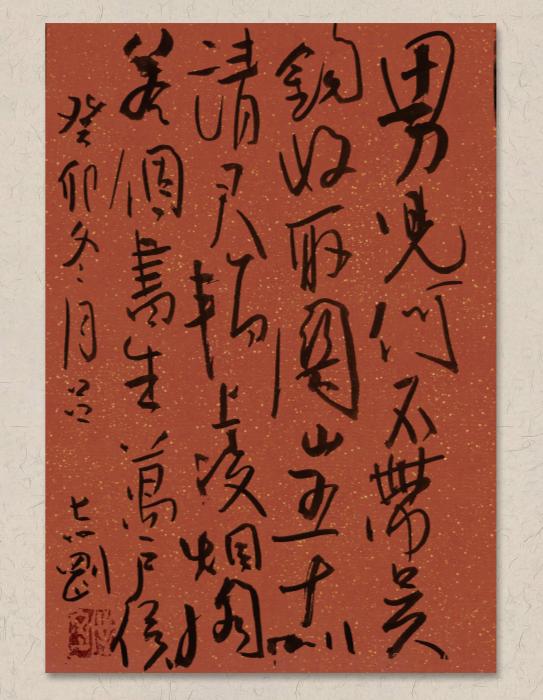 男兒何不帶吳
鈎收取關山五十州
請君暫上凌烟閣
若個書生萬戶侯
癸卯冬月呂志剛